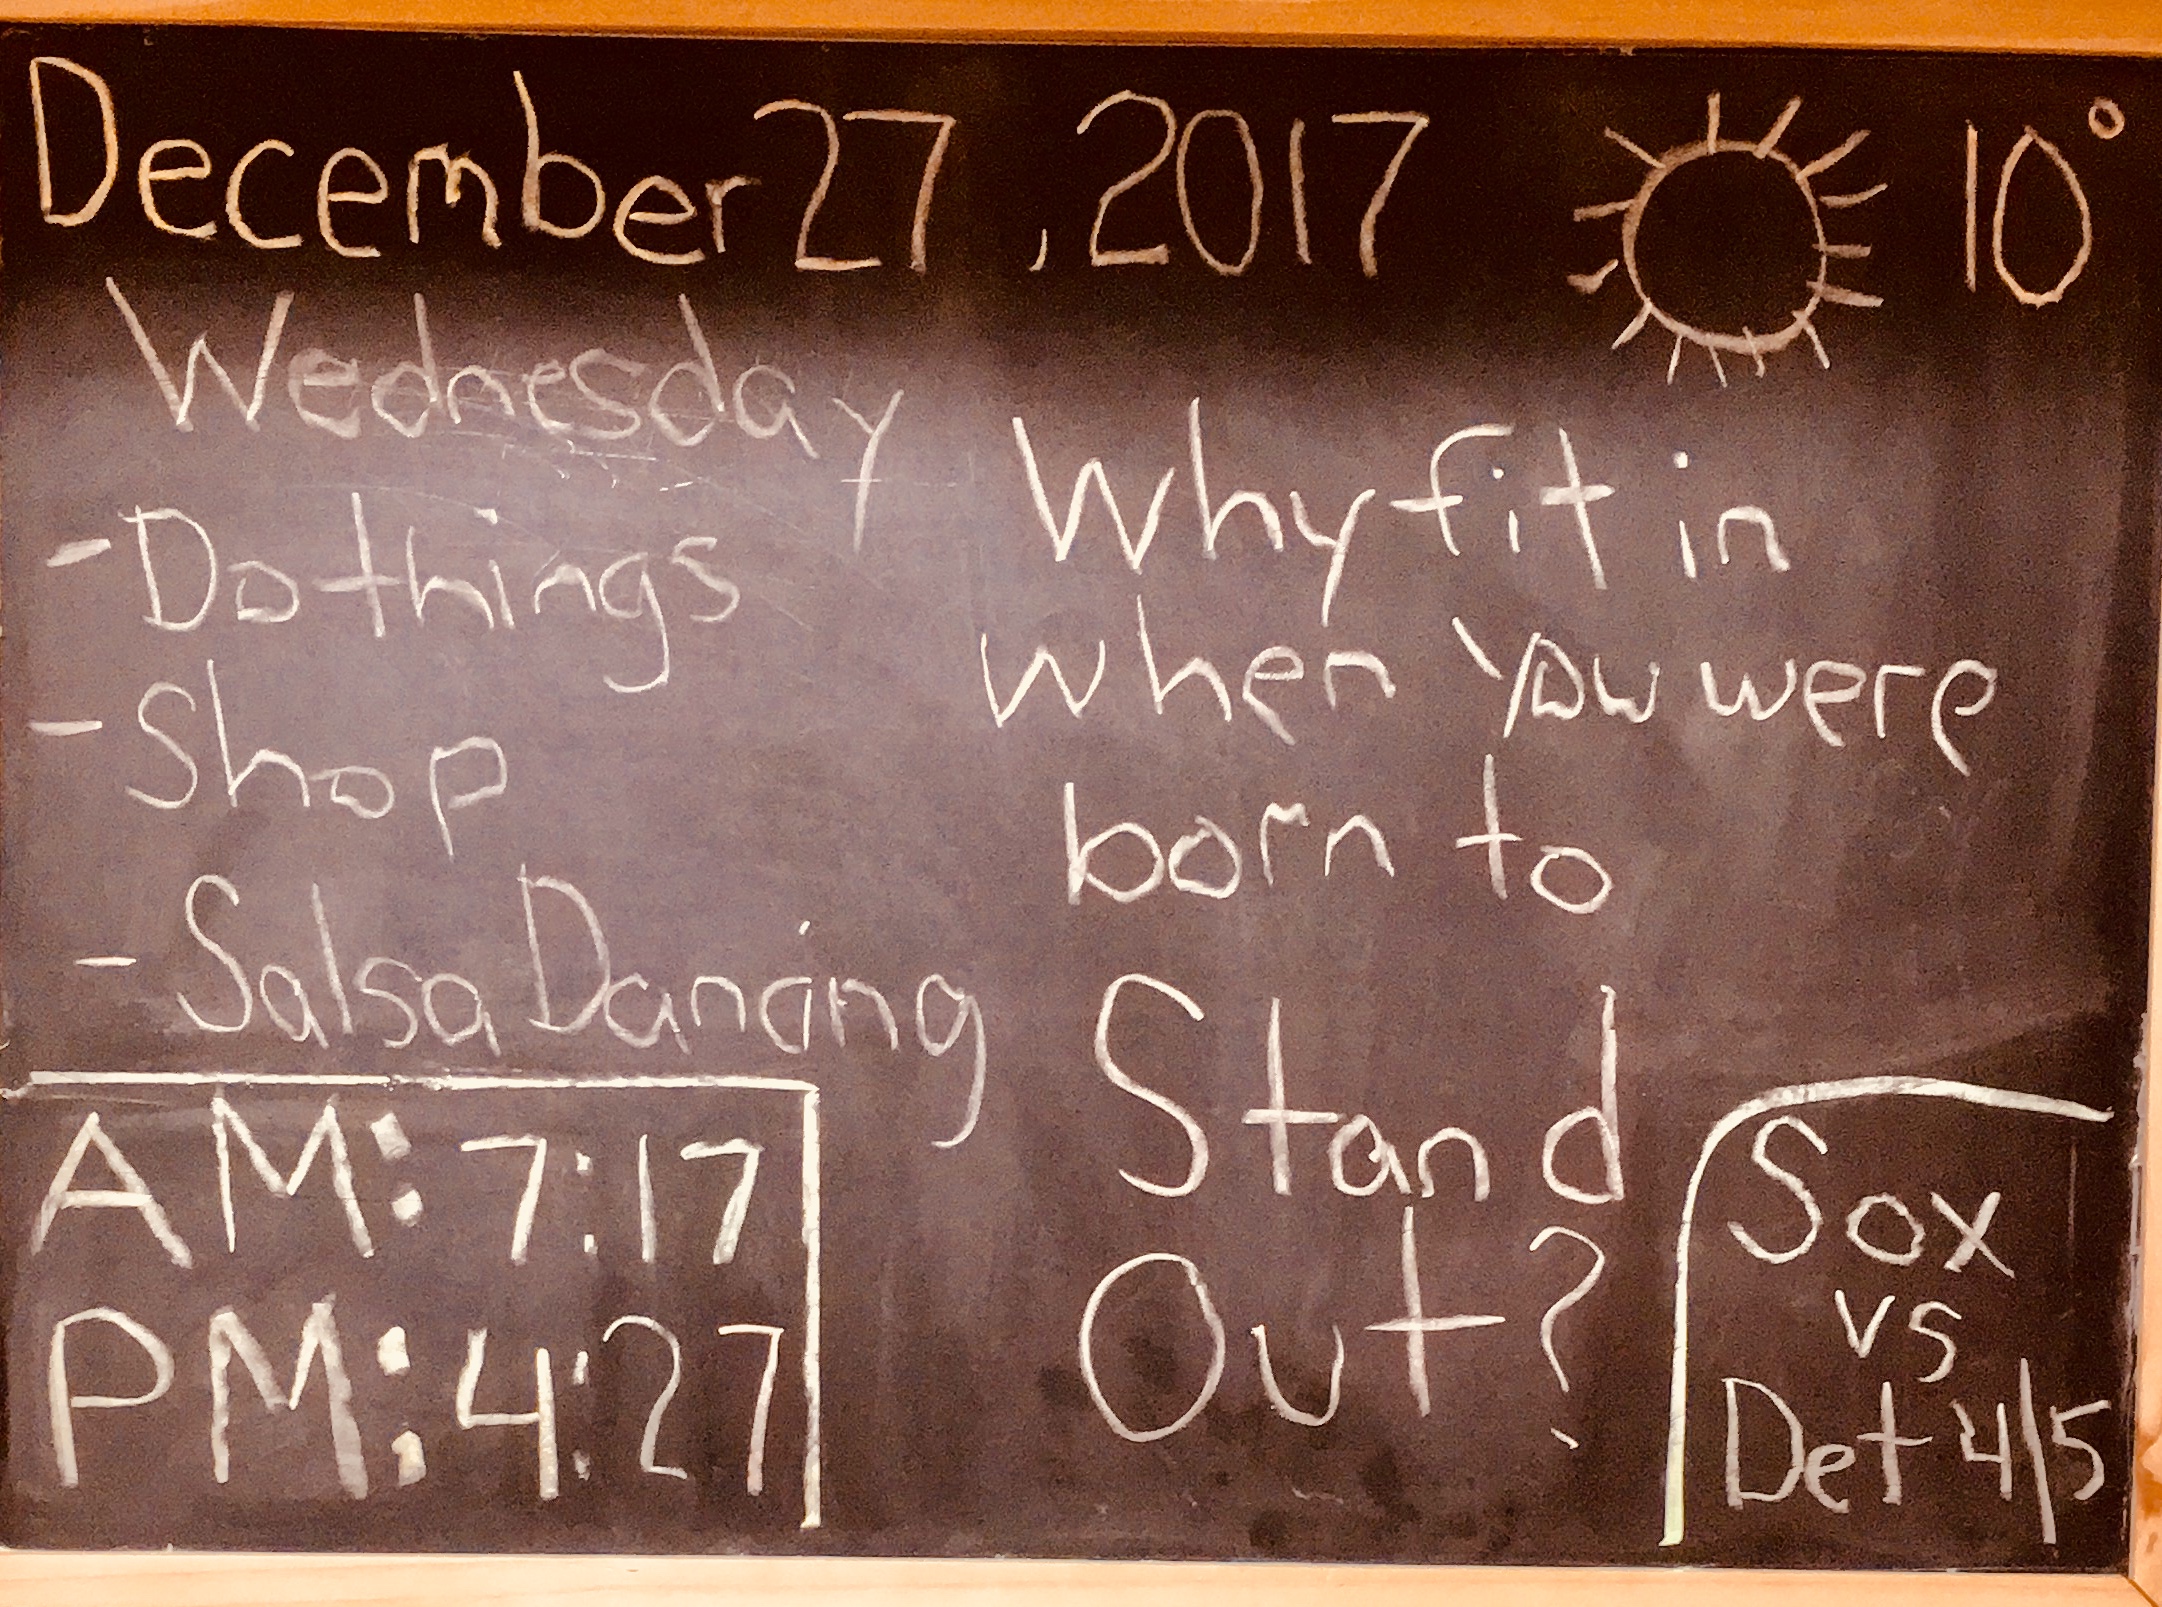 December 27, 2017 10°
Wednesday
- Do things
- Shop
- Salsa Dancing
Why fit in
when you were
born to
Stand
Out?
AM: 7:17
PM: 4:27
Sox
vs
Det 4/5